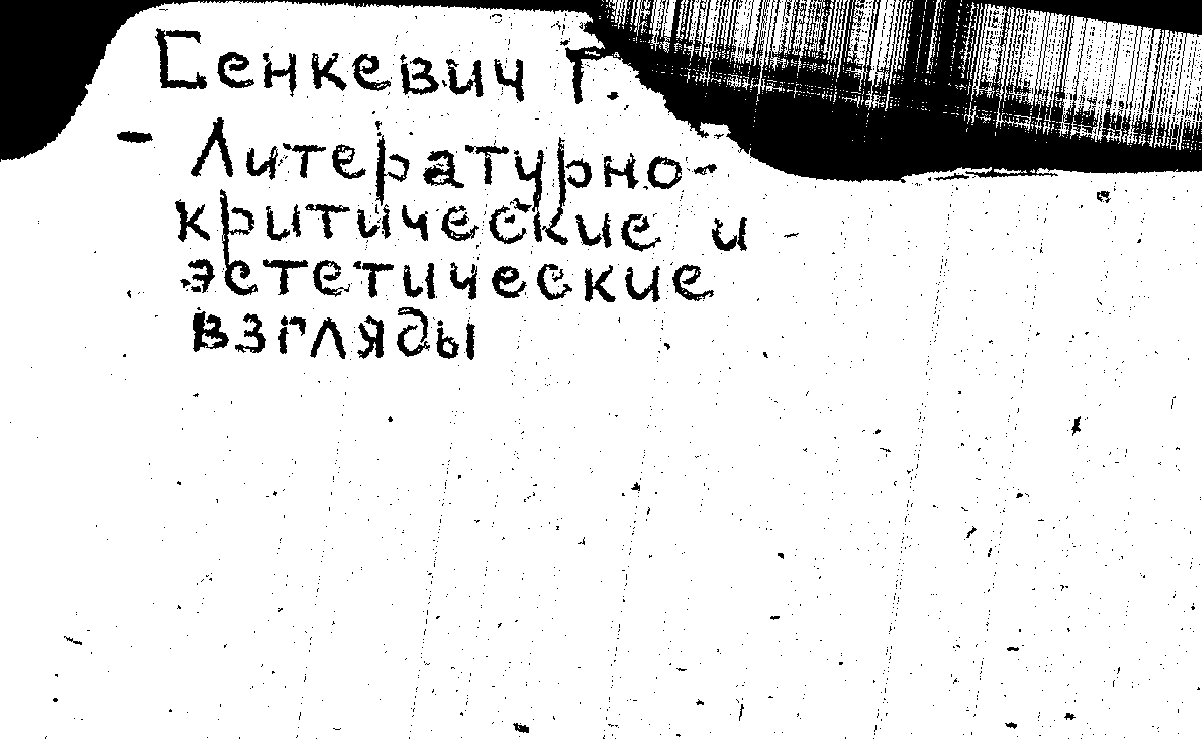 Сенкевич Г.
- Литературно-
критические и
эстетические
взгляды